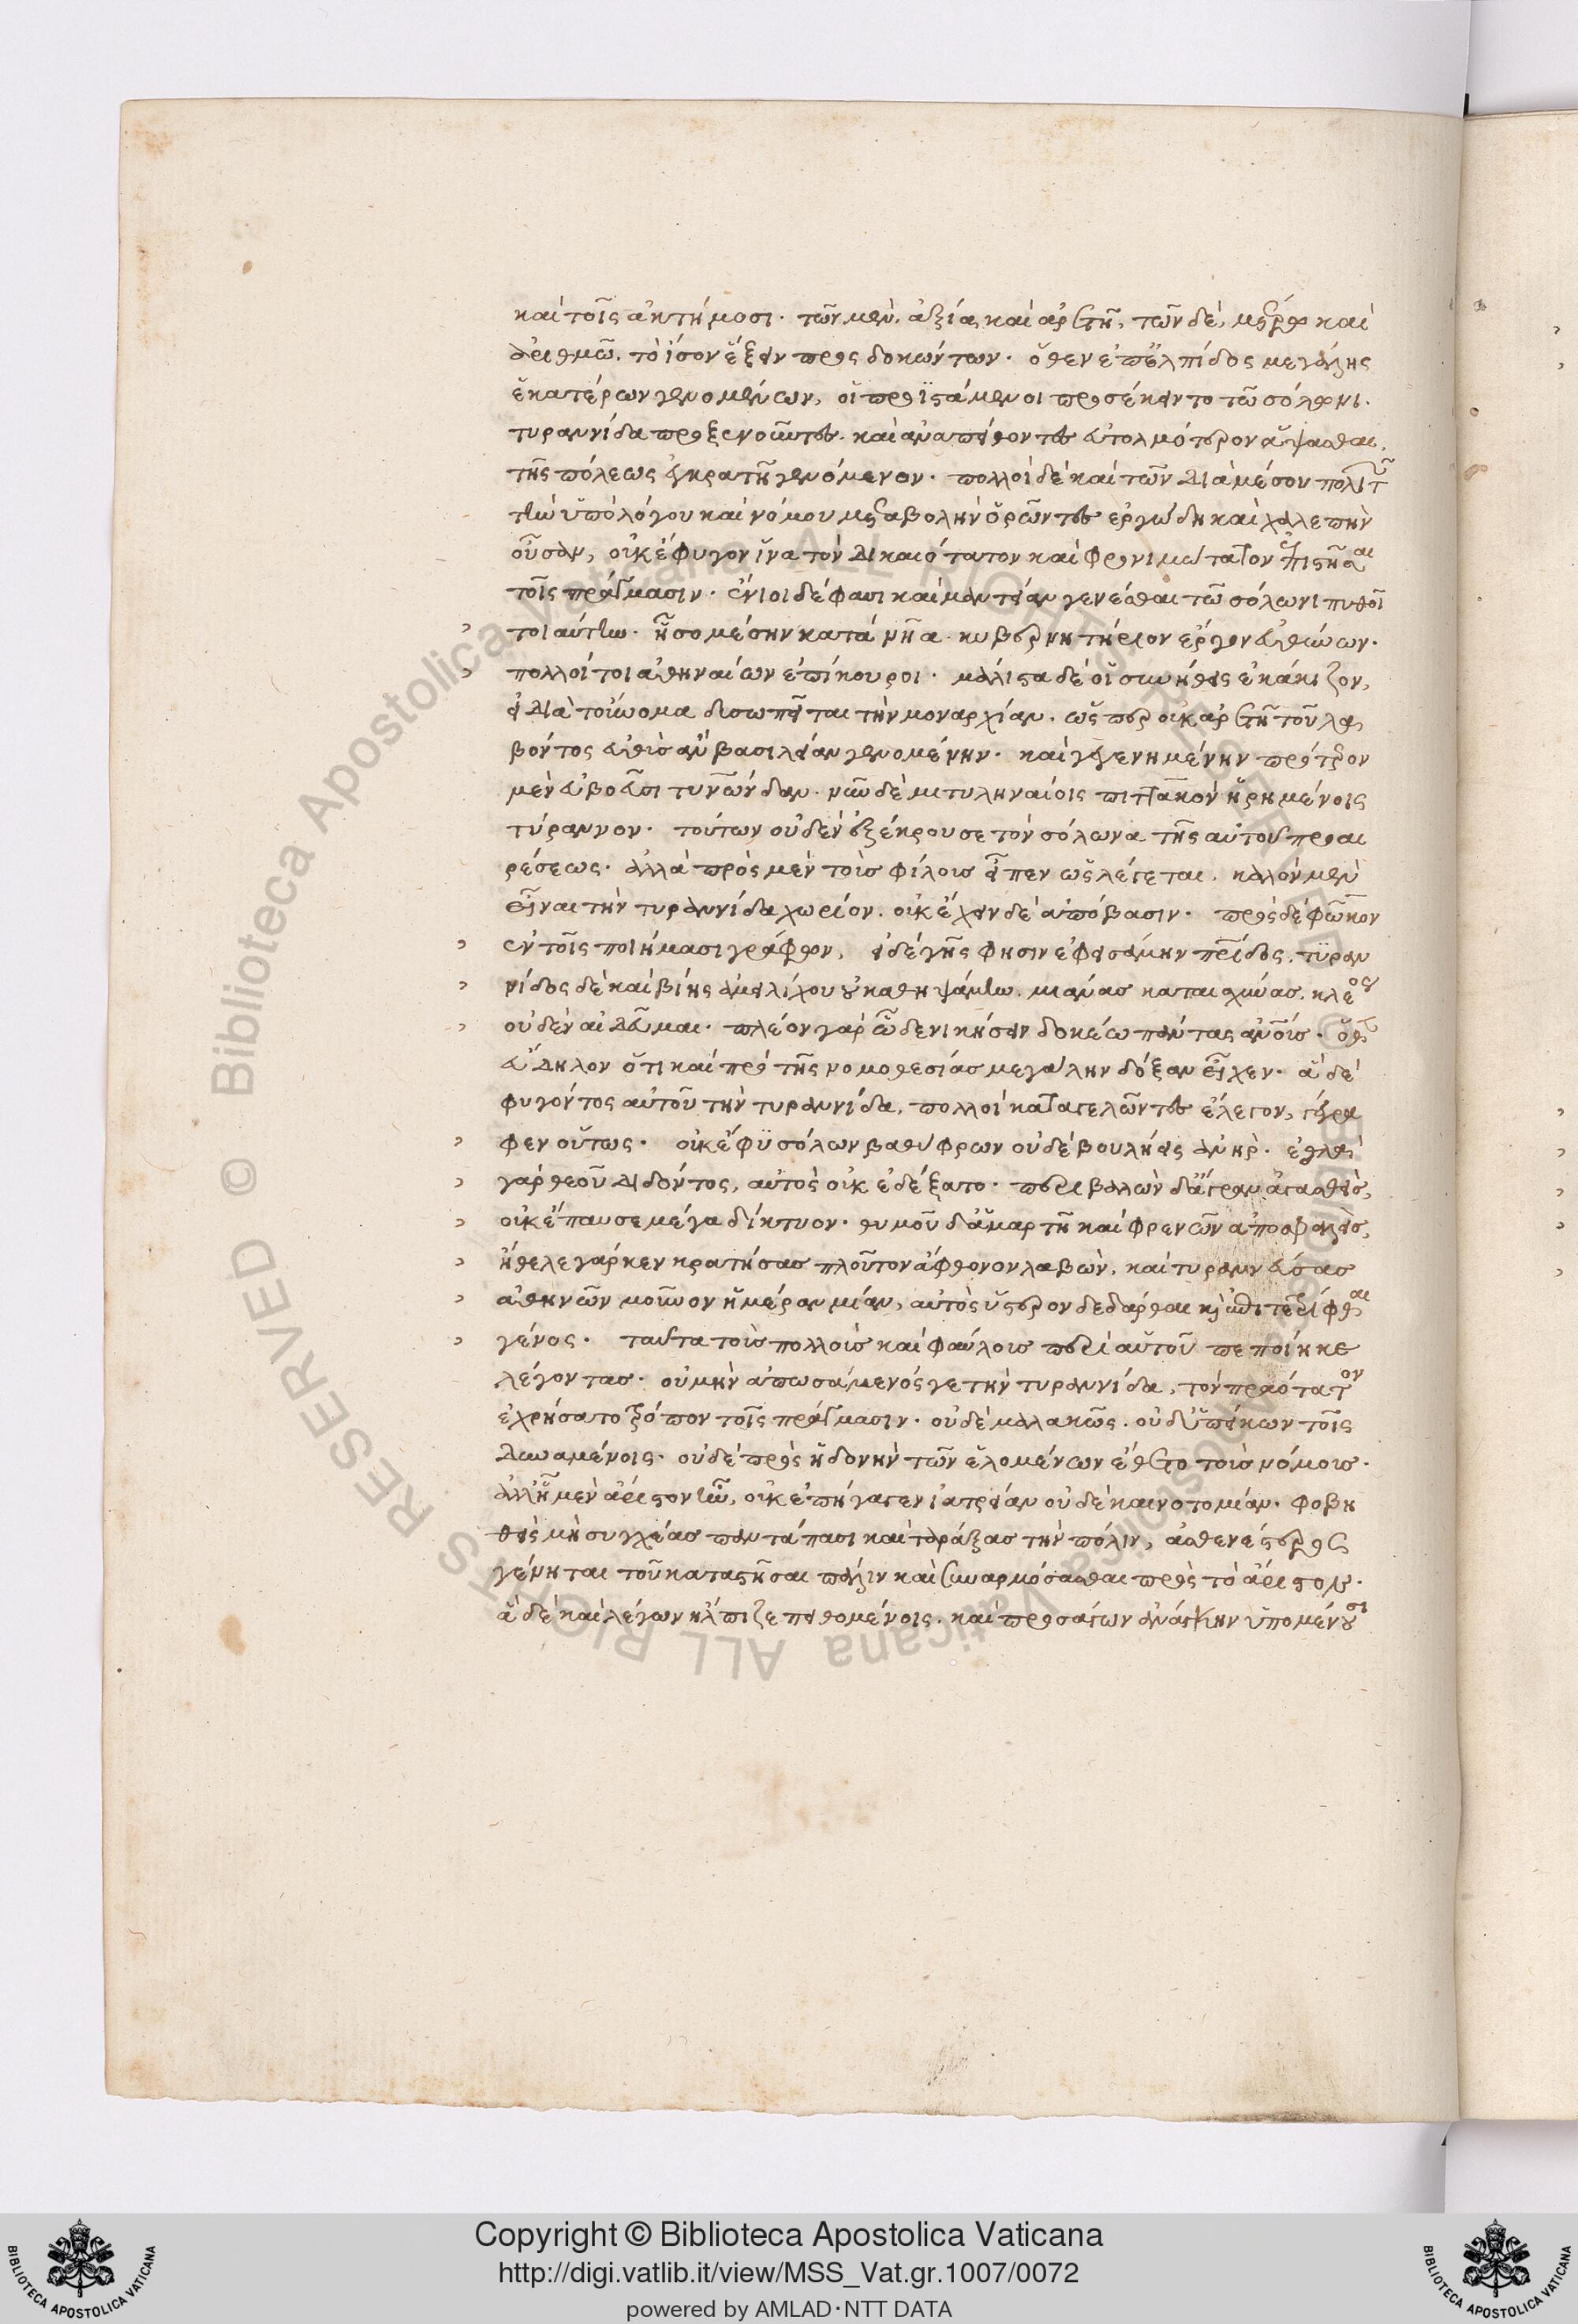 καὶ τοῖς ἀκτήμοσι· τῶν μὲν, ἀξία καὶ ἀρετῇ, τῶν δὲ, μέτρω καὶ
ἀριθμῶ, τὸ ἴσον ἕξειν προσδοκώντων· ὅθεν ἐπ' ἐλπίδος μεγάλης
ἑκατέρων γενομένων, οἱ προϊστάμενοι προσέκειντο τῶ σόλωνι·
τυραννίδα προξενοῦντες· καὶ ἀναπείθοντες εὐτολμότερον ἅψασθαι
τῆς πόλεως ἐγκρατῆ γενόμενον· πολλοὶ δὲ καὶ τῶν διὰ μέσου πολιτῶν
τὴν ὑπὸ λόγου καὶ νόμου μεταβολὴν ὁρῶντες ἐργώδη καὶ χαλεπὴν
οὖσαν, οὐκ ἔφυγον ἕνα τὸν δικαιότατον καὶ φρονιμώτατον ἐπιστῆσαι
τοῖς πράγμασιν· ἔνιοι δέ φασι καὶ μαντείαν γενέσθαι τῶ σόλωνι πυθοῖ
τοιαύτην· ἧσο μέσην κατὰ νῆα· κυβερνητήριον ἔργον εὐθύνων·
πολλοί τοι ἀθηναίων ἐπίκουροι· μάλιστα δὲ οἱ συνήθεις ἐκάκιζον,
εἰ διὰ τοὔνομα δυσωπεῖται τὴν μοναρχίαν· ὥσπερ οὐκ ἀρετῆ τοῦ λα
βόντος εὐθὺς ἂν βασιλείαν γενομένην· καὶ γεγενημένην πρότερον
μὲν εὐβοεῦσι τυννώνδαν· νῦν δὲ μιτυληναίοις πιττακὸν ἡρημένοις
τύραννον· τούτων οὐδὲν ἐξέκρουσε τὸν σόλωνα τῆς αὐτοῦ προαι
ρέσεως· ἀλλὰ πρὸς μὲν τοὺς φίλους εἶπεν ὡς λέγεται, καλὸν μὲν
εἶναι τὴν τυραννίδα χωρίον· οὐκ ἔχειν δὲ ἀπόβασιν· πρὸς δὲ φῶκον
ἐν τοῖς ποιήμασι γράφων, εἰ δὲ γῆς φησιν ἐφεισάμην πατρίδος, τυραν
νίδος δὲ καὶ βίης ἀμειλίχου οὐ καθηψάμην, μιάνας καταισχύνας κλέος
οὐδὲν αἰδεῦμαι· πλέον γὰρ ὧδε νικήσειν δοκέω πάντας ἀνθρώπους· ὅθεν
εὔδηλον ὅτι καὶ πρὸ τῆς νομοθεσίας μεγάλην δόξαν εἶχεν· ἃ δὲ
φυγόντος αὐτοῦ τὴν τυραννίδα, πολλοὶ καταγελῶντες ἔλεγον, γέγρα
φεν οὕτως· οὐκ ἔφυ σόλων βαθύφρων οὐδὲ βουλήεις ἀνήρ· ἐσθλὰ
γὰρ θεοῦ διδόντος, αὐτὸς οὐκ ἐδέξατο· περιβαλὼν δ' ἄγραν ἀγασθεὶς,
οὐκ ἔπαυσε μέγα δίκτυον· θυμοῦ δ' ἁμαρτῆ καὶ φρενῶν ἀποσφαλεὶς,
ἤθελε γάρ κεν κρατήσας πλοῦτον ἄφθονον λαβὼν, καὶ τυραννεύσας
ἀθηνῶν μοῦνον ἡμέραν μίαν, αὐτὸς ὕστερον δεδάρθαι κἀπιτετρίφθαι
γένος· ταῦτα τοὺς πολλοὺς καὶ φαύλους περὶ αὑτοῦ πεποίηκε
λέγοντας· οὐ μὴν ἀπωσάμενός γε τὴν τυραννίδα, τὸν πραότατον
ἐχρήσατο τρόπον τοῖς πράγμασιν· οὐδὲ μαλακῶς· οὐδ' ὑπείκων τοῖς
δυναμένοις· οὐδὲ πρὸς ἡδονὴν τῶν ἑλομένων ἔθετο τοὺς νόμους·
ἀλλ' ᾗ μὲν ἄριστον ἦν, οὐκ ἐπήγαγεν ἰατρείαν οὐδὲ καινοτομίαν· φοβη
θεὶς μὴ συγχέας παντάπασι καὶ ταράξας τὴν πόλιν, ἀσθενέστερος
γένηται τοῦ καταστῆσαι πάλιν καὶ συναρμόσασθαι πρὸς τὸ ἄριστον·
ἃ δὲ καὶ λέγων ἤλπιζε πειθομένοις· καὶ προσάγων ἀνάγκην ὑπομένουσι
Copyright © Biblioteca Apostolica Vaticana
http://digi.vatlib.it/view/MSS_Vat.gr.1007/0072
powered by AMLAD·NTT DATA